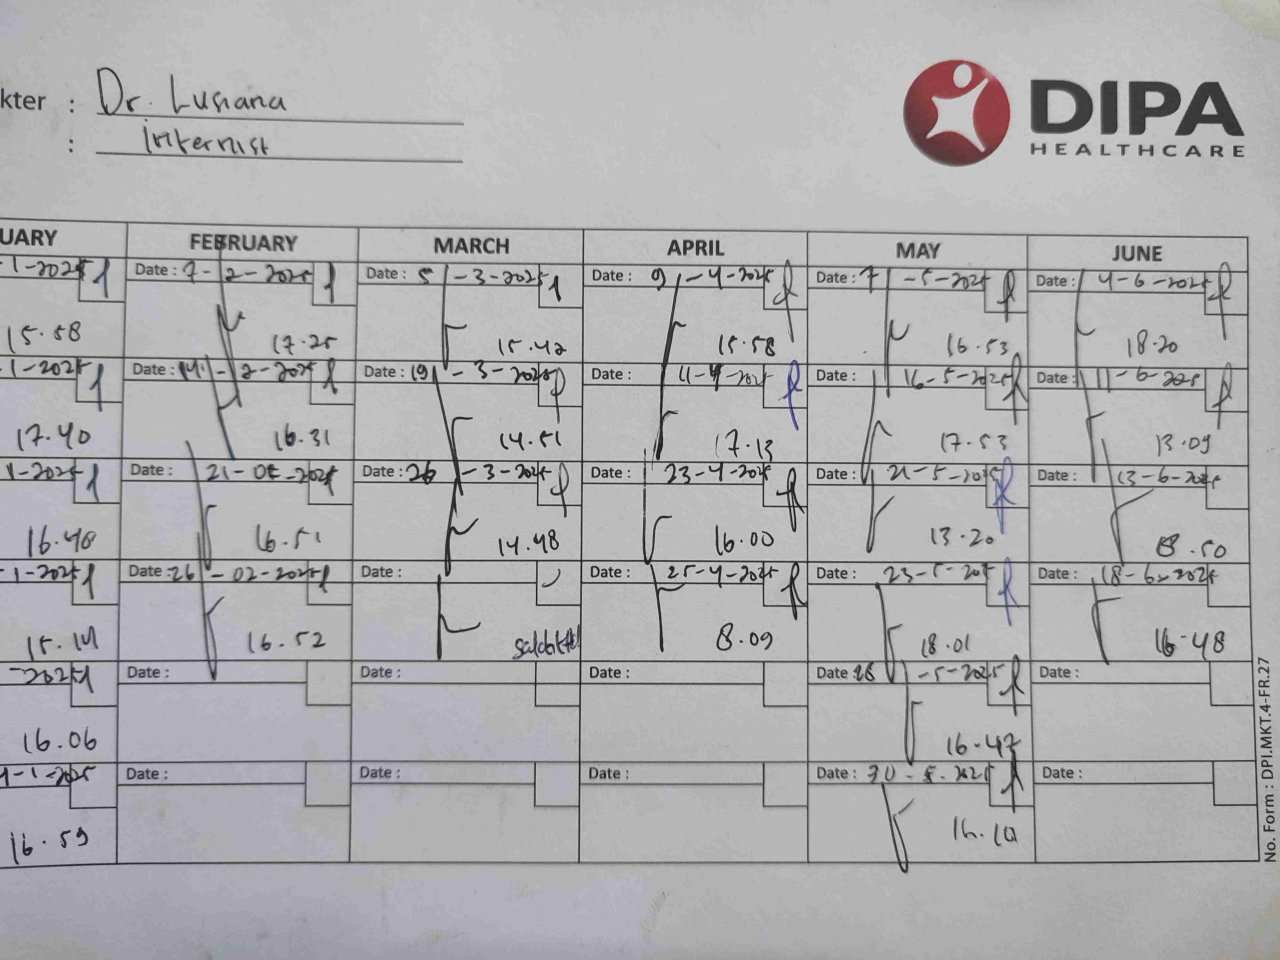 kter : Dr. Lusiana
: Internist
DIPA
HEALTHCARE
UARY FEBRUARY MARCH APRIL MAY JUNE
-1-2025 Date : 7-2-2025 Date : 5-3-2025 Date : 9-4-2025 Date : 7-5-2025 Date : 4-6-2025
15.58 17.25 15.42 15.58 16.53 18.20
-1-2025 Date : 14-2-2025 Date : 19-3-2025 Date : 11-4-2025 Date : 16-5-2025 Date : 11-6-2025
17.40 16.31 14.51 17.13 17.53 13.09
1-2025 Date : 21-02-2025 Date : 26-3-2025 Date : 23-4-2025 Date : 21-5-2025 Date : 13-6-2025
16.48 16.51 14.48 16.00 13.20 8.50
-1-2025 Date : 26-02-2025 Date : Date : 25-4-2025 Date : 23-5-2025 Date : 18-6-2025
15.14 16.52 8.09 18.01 16.48
-2025 Date : Date : Date : Date : 28-5-2025 Date :
16.06 16.47
-1-2025 Date : Date : Date : Date : 30-5-2025 Date :
16.59 16.10
No. Form : DPI.MKT.4-FR.27